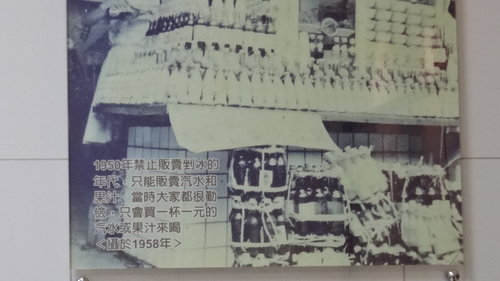 1950年禁止販賣剉冰的
年代，只能販賣汽水和
果汁，當時大家都很勤
儉，只會買一杯一元的
汽水或果汁來喝
＜攝於1958年＞